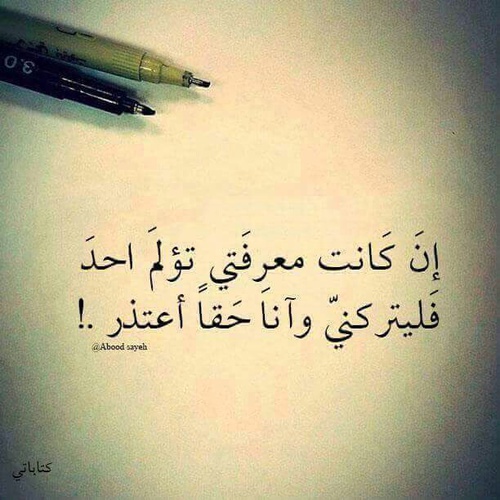 3.0
إنَ كَانت معرفَتي تؤلمَ احدَ
فَليتركنيّ وآناَ حَقاً أعتذر .!
@Abood sayeh
كتاباتي